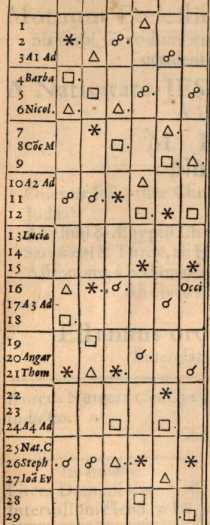 1 △
2 ⚹. ☍.
3 A1 Ad △ ☍.
4 Barba □.
5 □ ☍. ☍.
6 Nicol. △. △.
7 ⚹ △.
8 Cōc M □.
9 □ △.
10 A2 Ad △
11 ☍ ☌. ⚹
12 □. ⚹ □
13 Lucia
14
15 ⚹ ⚹
16 △ ⚹. ☌. Occi
17 A3 Ad ☌
18 □.
19 □
20 Angar ☌.
21 Thom ⚹ △ ⚹. ⚹
22 ⚹
23
24 A4 Ad □ □.
25 Nat. C
26 Steph .☌ ☍ △. ⚹ ⚹
27 Ioā Ev △
28 □
29 □